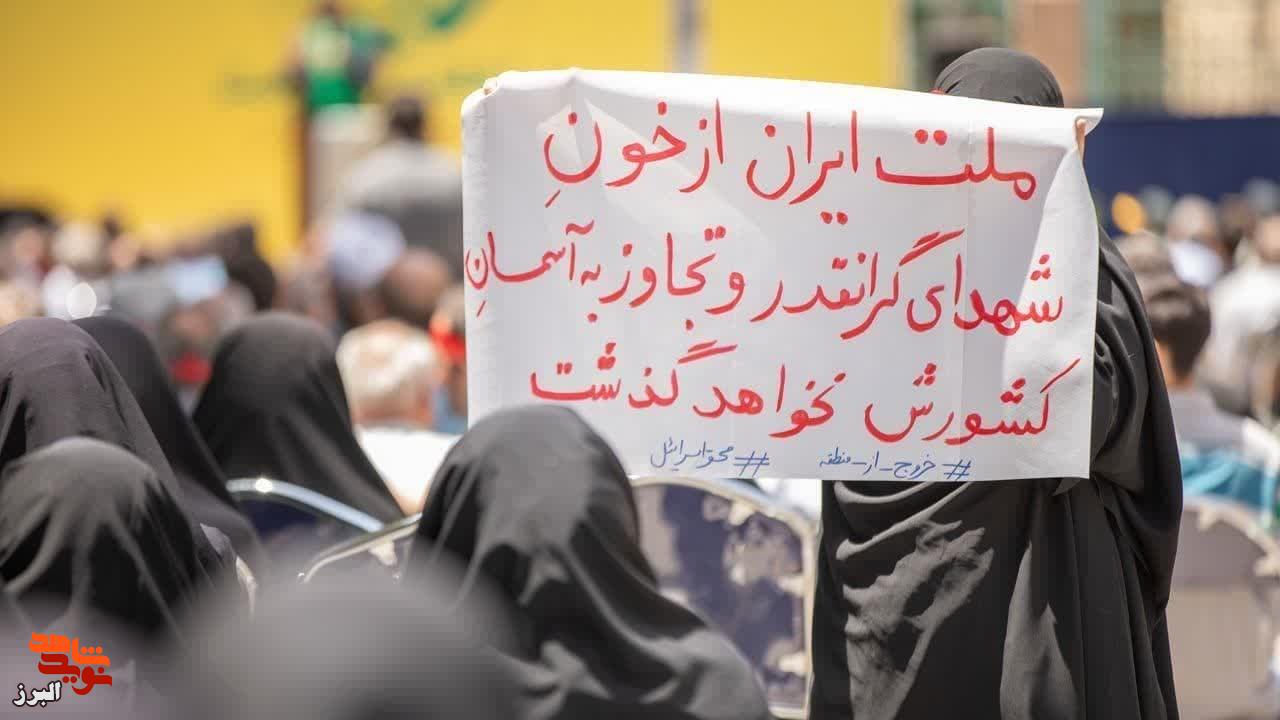 ملت ایران از خونِ
شهدای گرانقدر و تجاوز به آسمانِ
کشورش نخواهد گذشت
#خروج_از_منطقه #محو_اسرائیل
نوید شاهد
البرز